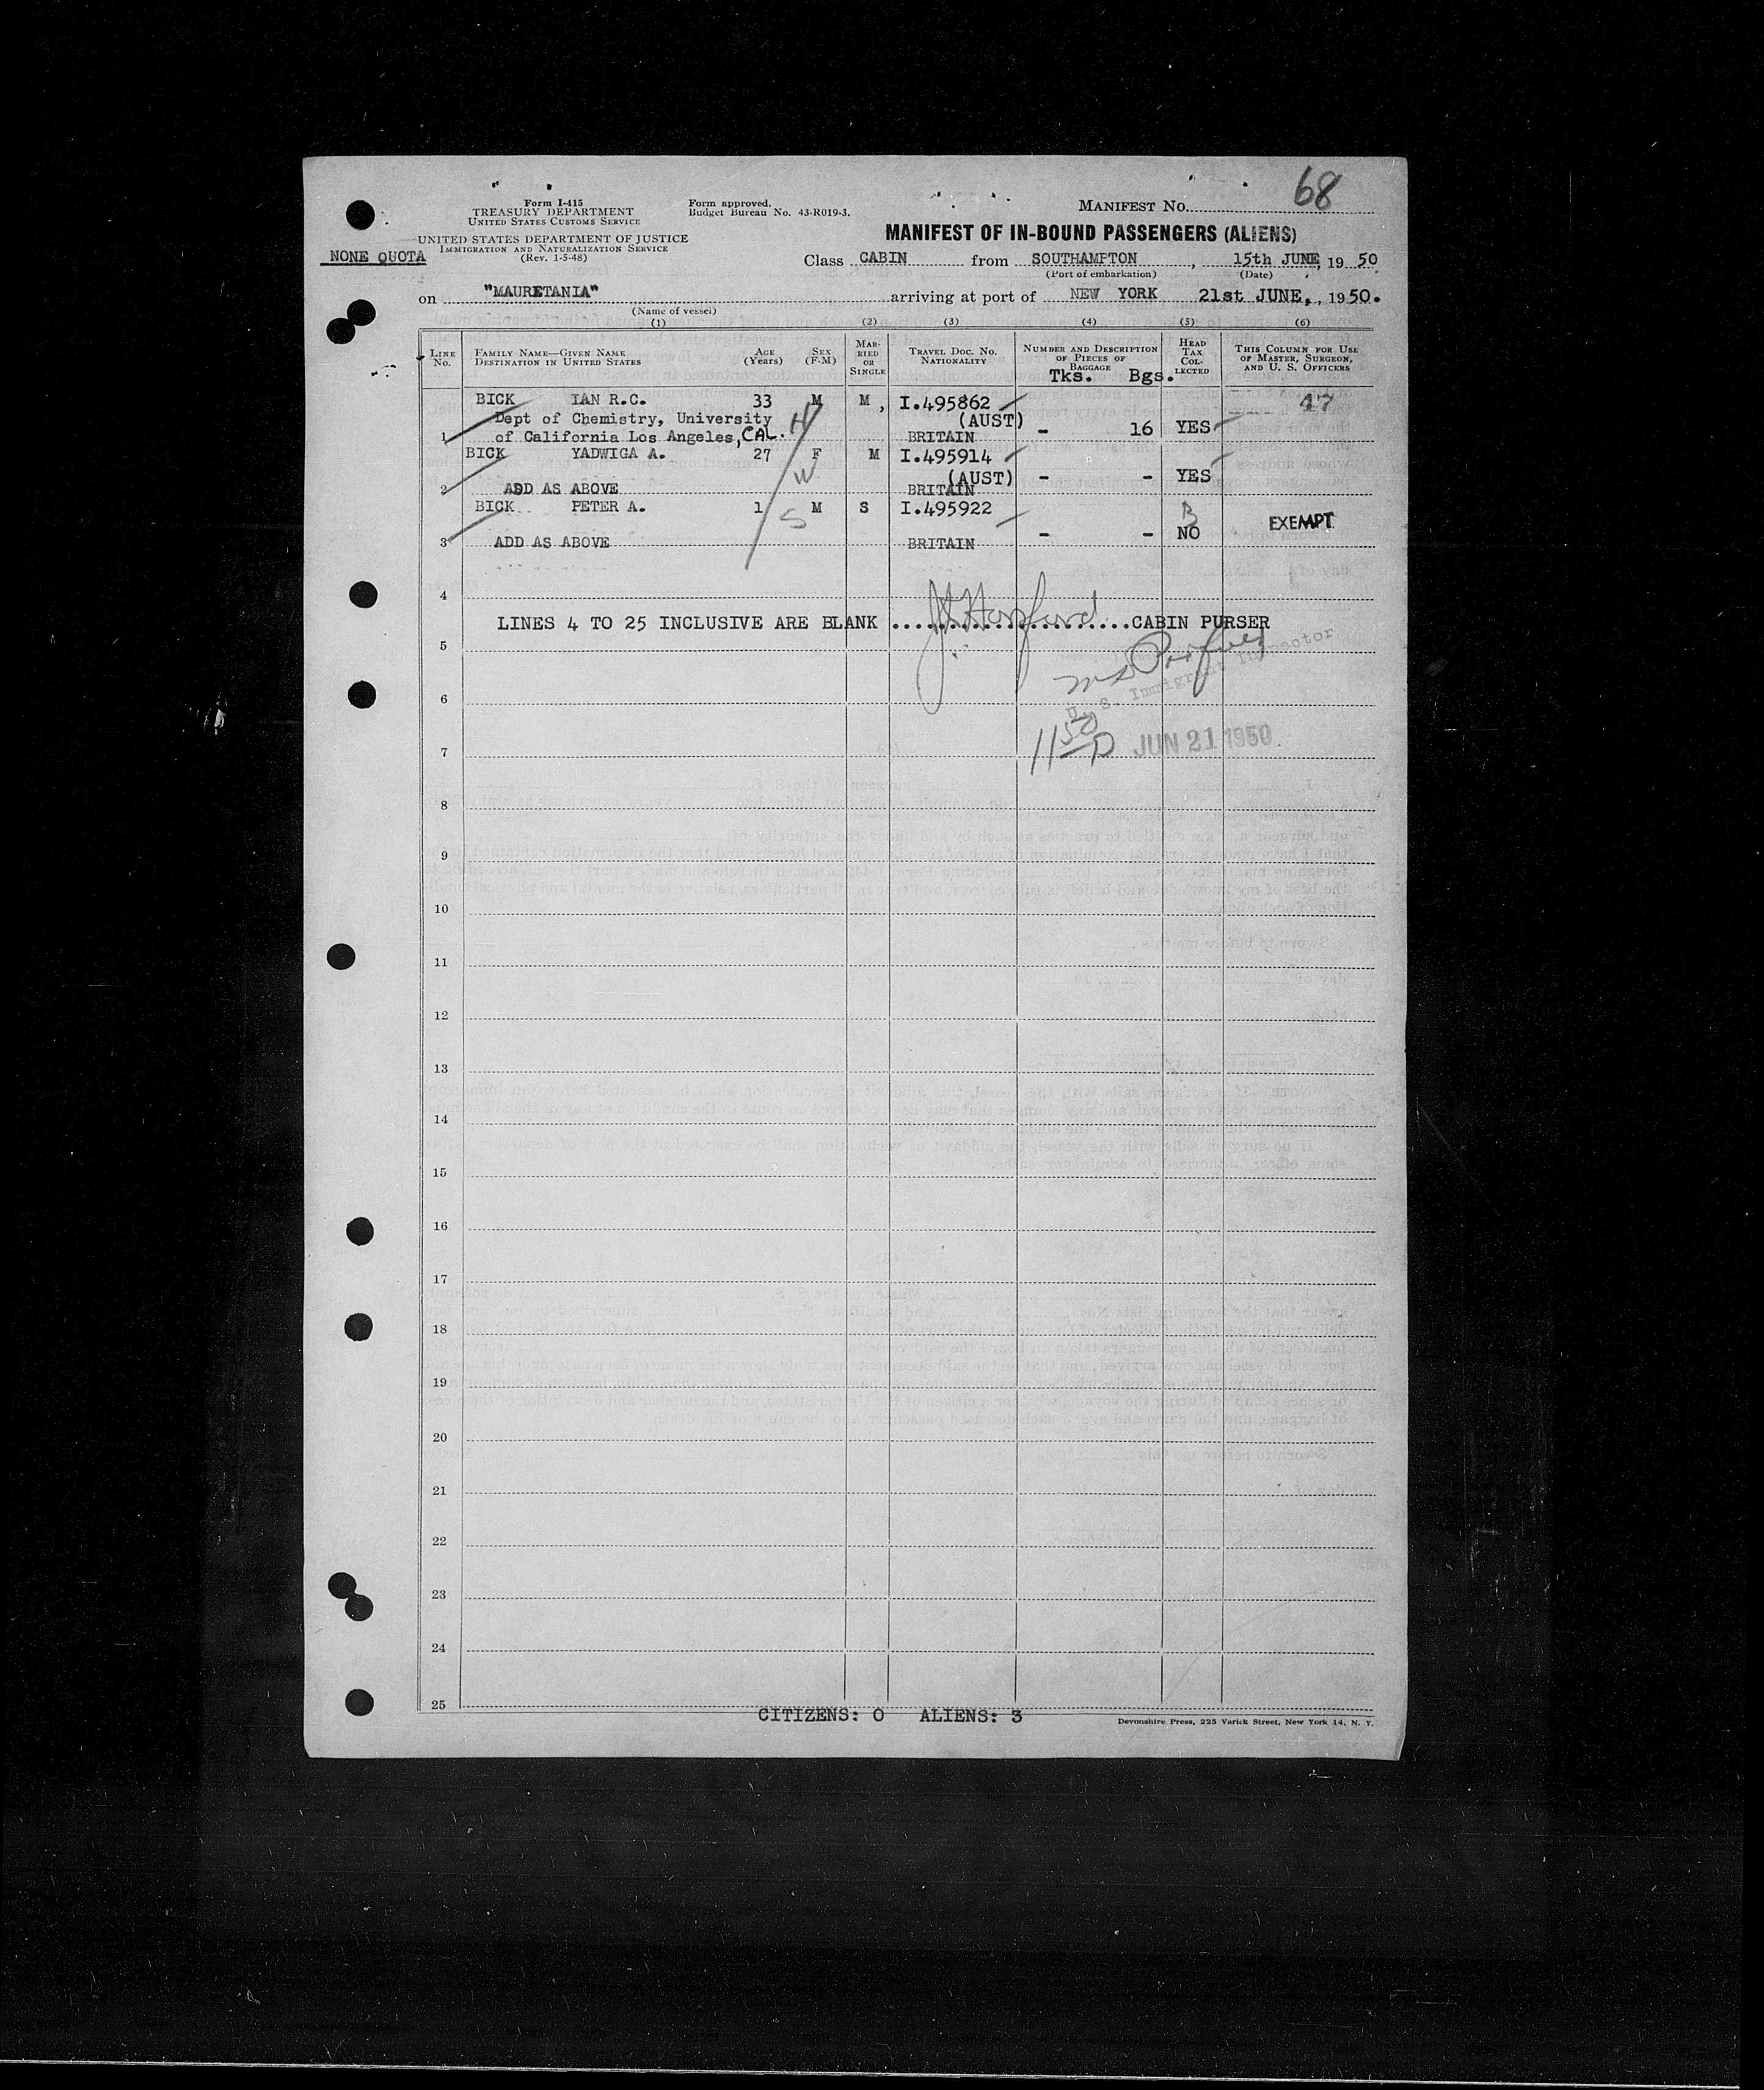 68
Form I-415
TREASURY DEPARTMENT
UNITED STATES CUSTOMS SERVICE
Form approved.
Budget Bureau No. 43-R019-3.
MANIFEST No.
UNITED STATES DEPARTMENT OF JUSTICE
IMMIGRATION AND NATURALIZATION SERVICE
(Rev. 1-5-48)
MANIFEST OF IN-BOUND PASSENGERS (ALIENS)
NONE QUOTA
Class CABIN from SOUTHAMPTON, 15th JUNE, 19 50
(Port of embarkation) (Date)
on "MAURETANIA" arriving at port of NEW YORK 21st JUNE,, 1950.
(Name of vessel)
(1) (2) (3) (4) (5) (6)
LINE No. FAMILY NAME—GIVEN NAME DESTINATION IN UNITED STATES AGE (Years) SEX (F-M) MARRIED OR SINGLE TRAVEL DOC. No. NATIONALITY NUMBER AND DESCRIPTION OF PIECES OF BAGGAGE HEAD TAX COLLECTED THIS COLUMN FOR USE OF MASTER, SURGEON, AND U. S. OFFICERS
Tks. Bgs.
BICK IAN R.C. 33 M M, I.495862 47
Dept of Chemistry, University H (AUST) - 16 YES
1 of California Los Angeles, CAL. BRITAIN
BICK YADWIGA A. 27 F M I.495914
W (AUST) - - YES
2 ADD AS ABOVE BRITAIN
BICK PETER A. 1 S M S I.495922 B EXEMPT
- - NO
3 ADD AS ABOVE BRITAIN
4
LINES 4 TO 25 INCLUSIVE ARE BLANK ......................CABIN PURSER
5
U. S. Immigrant Inspector
6
11 50 P JUN 21 1950
7
8
9
10
11
12
13
14
15
16
17
18
19
20
21
22
23
24
25
CITIZENS: 0 ALIENS: 3
Devonshire Press, 225 Varick Street, New York 14, N. Y.